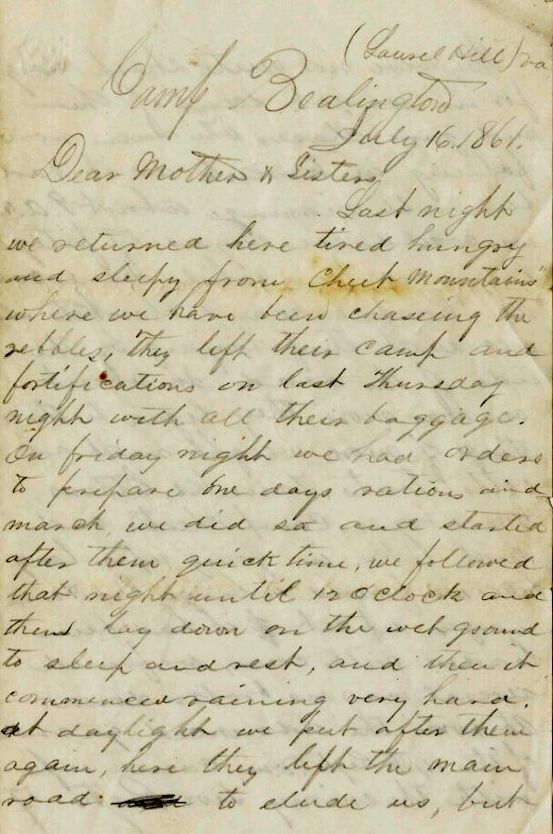 (Laurel Hill) va
Camp Bealington
July 16. 1861.
Dear Mother & Sisters
Last night
we returned here tired hungry
and sleepy from "Cheet Mountains"
where we have been chaseing the
rebbles, they left their camp and
fortifications on last Thursday
night with all their baggage.
On friday night we had orders
to prepare one days rations and
march, we did so and started
after them quick time, we followed
that night until 12 O'clock and
then lay down on the wet ground
to sleep and rest, and then it
commenced raining very hard.
at daylight we put after them
again, here they left the main
road to elude us, but